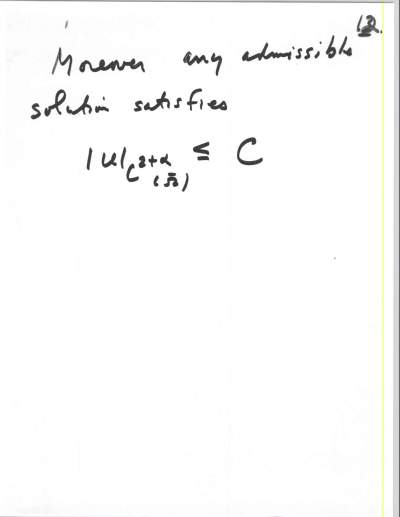 12.
Moreover any admissible
solution satisfies
|u|_{C^{2+α}(Ω̄)} ≤ C